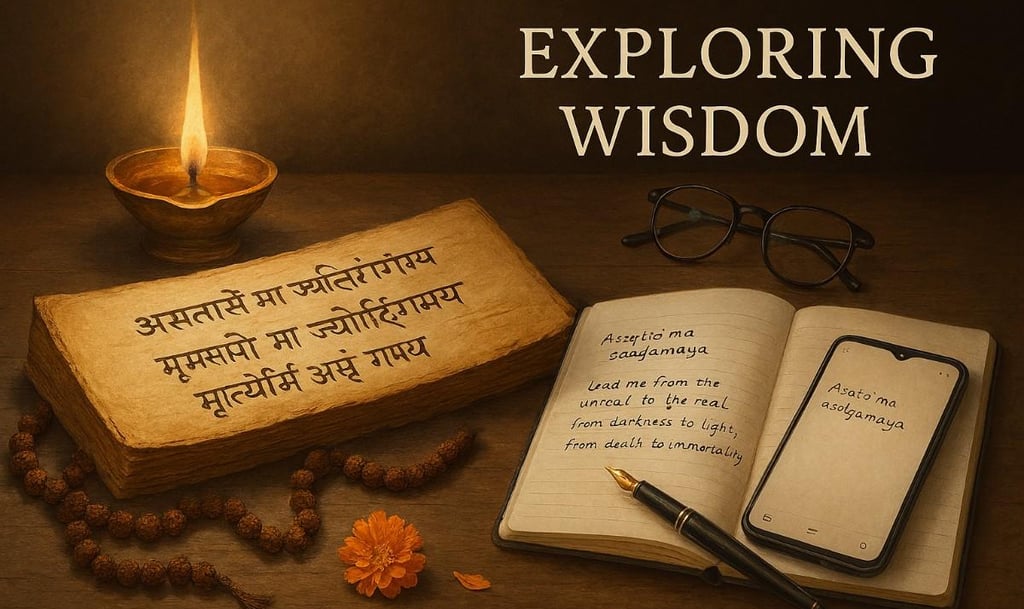 EXPLORING
WISDOM
असतासें मा ज्यतिरांगंग्य
मूमसापो मा ज्योर्तिगमय
मृार्त्योर्मि असृं गमय
Aszptio'ma
saadamaya
Lead me from the
unreal to the real
from darkness to light,
from dealh to immortality
Asato'ma
asolgamaya